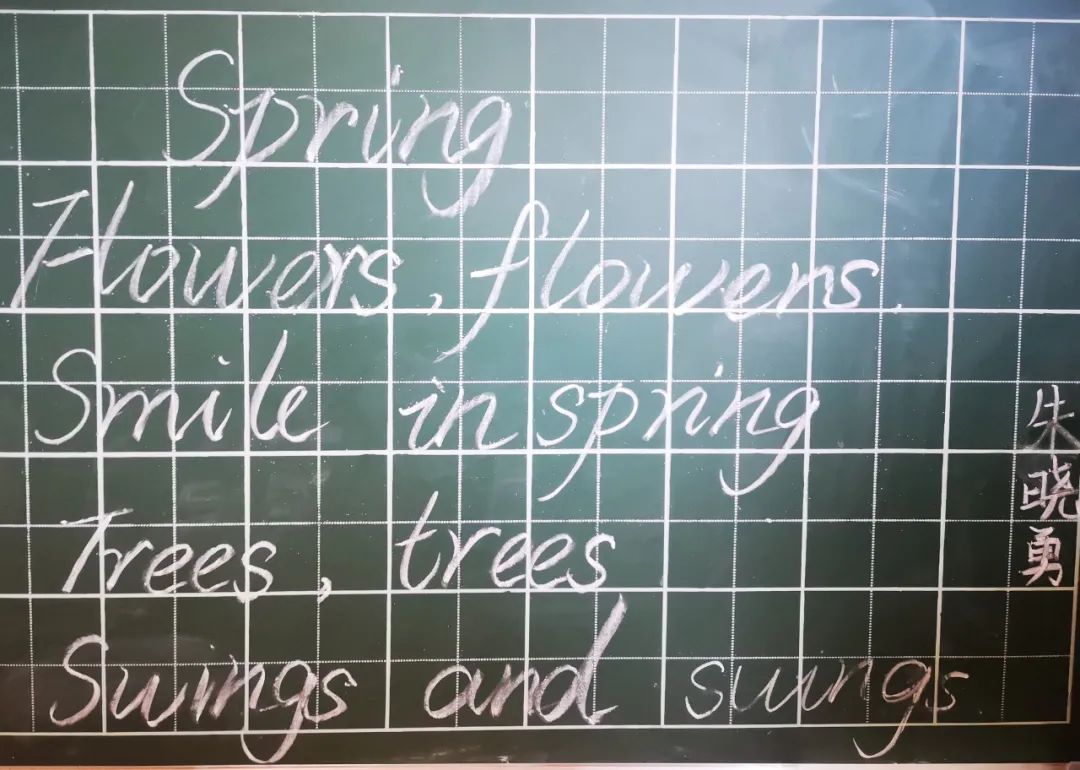 Spring
Flowers, flowers.
Smile in spring
Trees, trees
Swings and swings
朱晓勇